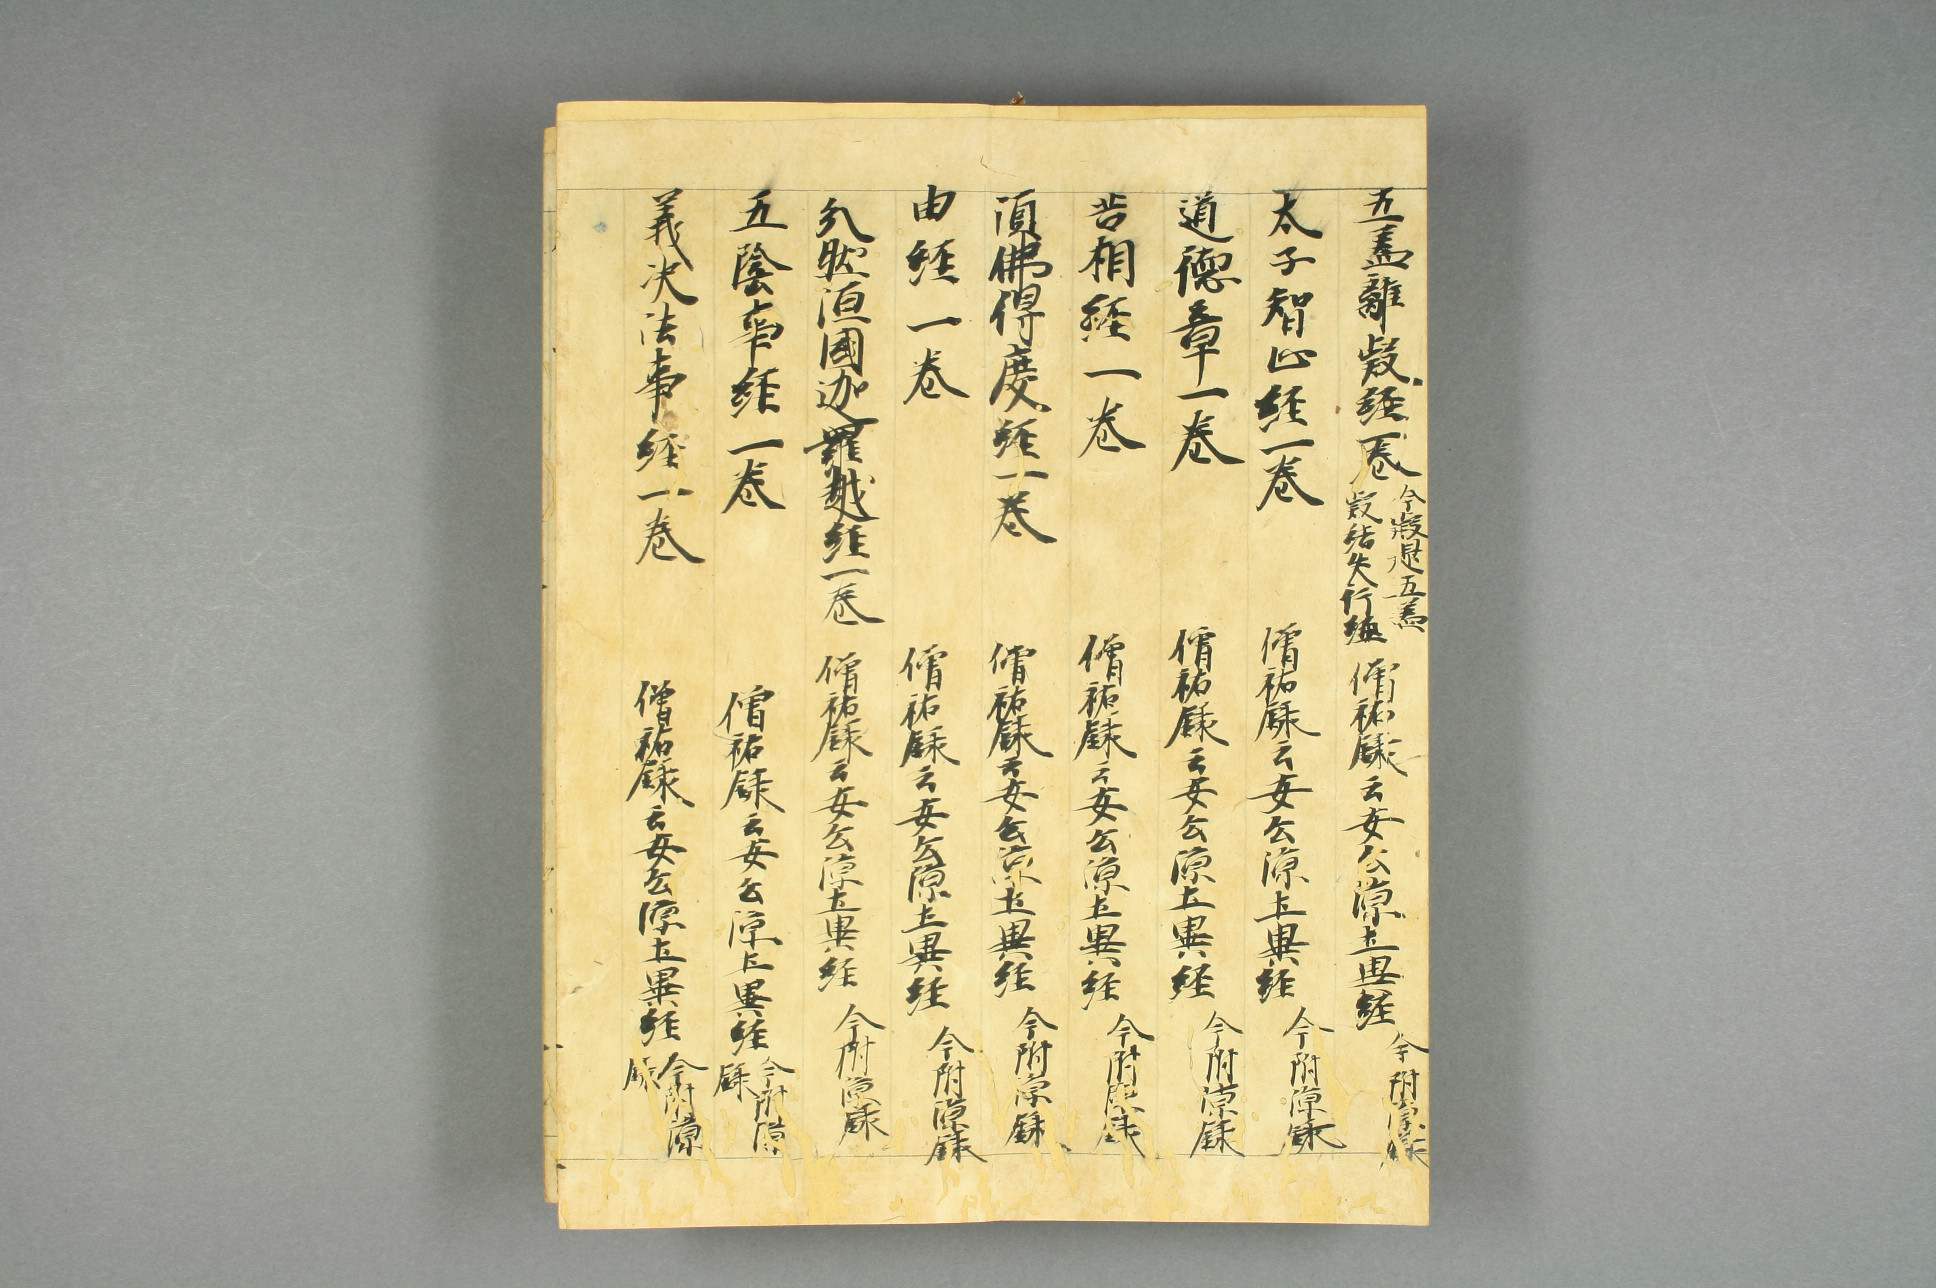 五盖離疑経一卷 今疑是五盖疑結失行経 僧祐録云安公凉土異経 今附凉録
太子智止経一卷 僧祐録云安公凉土異経 今附凉録
道德章一卷 僧祐録云安公凉土異経 今附凉録
苦相経一卷 僧祐録云安公凉土異経 今附凉録
須佛得度経一卷 僧祐録云安公凉土異経 今附凉録
由経一卷 僧祐録云安公凉土異経 今附凉録
分然洹國迦羅越経一卷 僧祐録云安公凉土異経 今附凉録
五陰事経一卷 僧祐録云安公凉土異経 今附凉録
義决法事経一卷 僧祐録云安公凉土異経 今附凉録